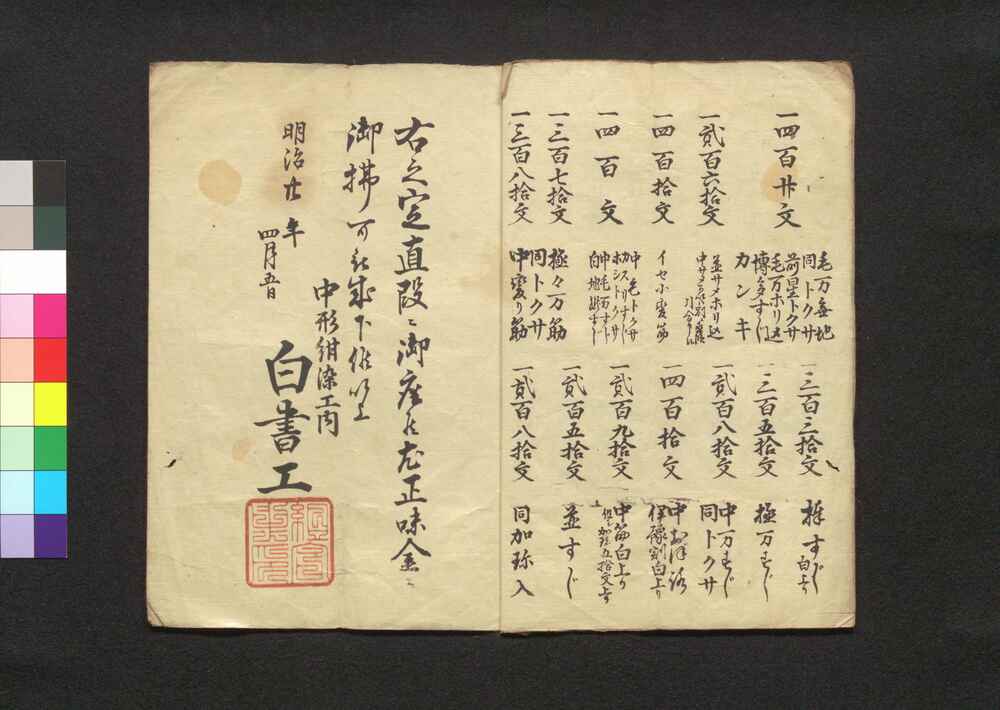 一四百廿文
一貳百六拾文
一四百拾文
一四百文
一三百七拾文
一三百八拾文
毛万無地
同トクサ
前星トクサ
毛万ホリ込
博多すじ
カンキ
並サメホリ込
イセ小変筋
中毛トクサ
カスリすじ
ホシトクサ
中毛万すじ
極々万筋
同トクサ
中変り筋
一三百三拾文
一三百五拾文
一貳百八拾文
一四百拾文
一貳百九拾文
一貳百五拾文
一貳百八拾文
白上り
極万すじ
中万すじ
同トクサ
白上り
中筋白上り
五拾文上り
並すじ
同加弥入
右之定直段ニ御座候尤正味金ニ
御拂可被成下候以上
明治廿年
四月五日
中形紺染工内
白書工